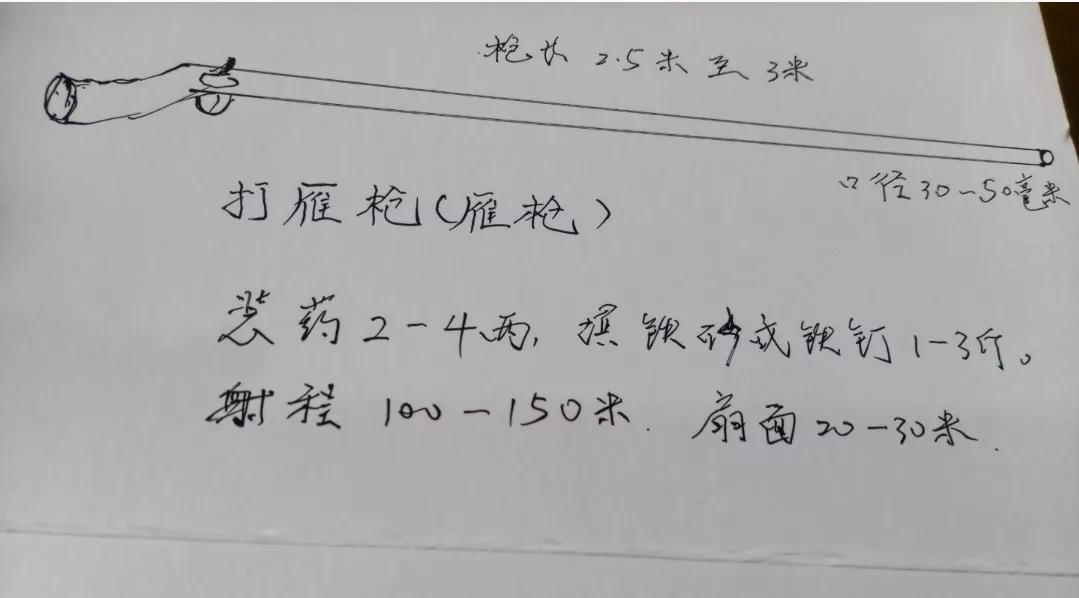 枪长 2.5米至 3米
口径30-50毫米
打雁枪(雁枪)
装药2-4两,填铁砂或铁钉1-3斤。
射程 100-150米. 扇面20-30米.